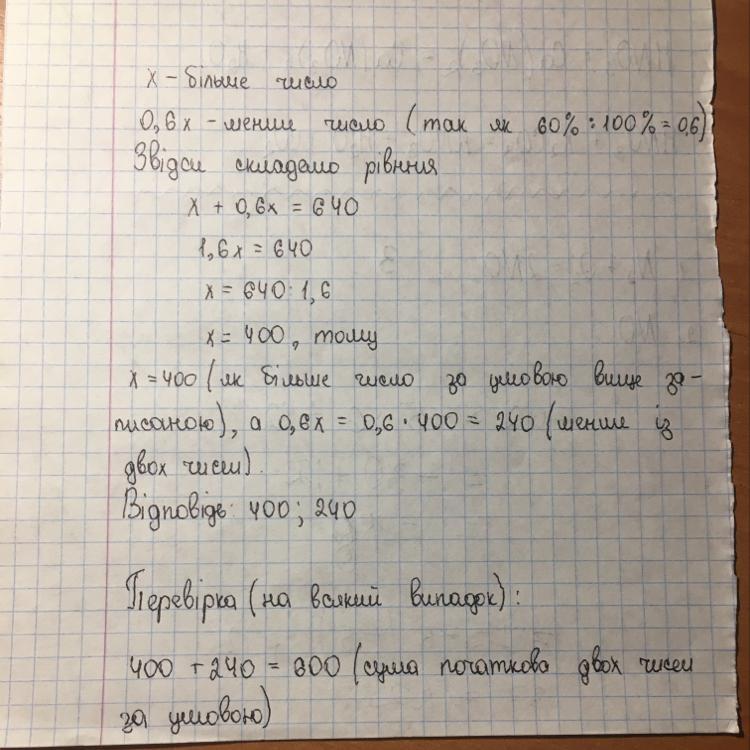 x - більше число
0,6x - менше число (так як 60% : 100% = 0,6)
Звідси складемо рівння
x + 0,6x = 640
1,6x = 640
x = 640 : 1,6
x = 400, тому
x = 400 (як більше число за умовою вище за-
писаною), а 0,6x = 0,6 · 400 = 240 (менше із
двох чисел).
Відповідь: 400; 240
Перевірка (на всякий випадок):
400 + 240 = 600 (сума початкова двох чисел
за умовою)